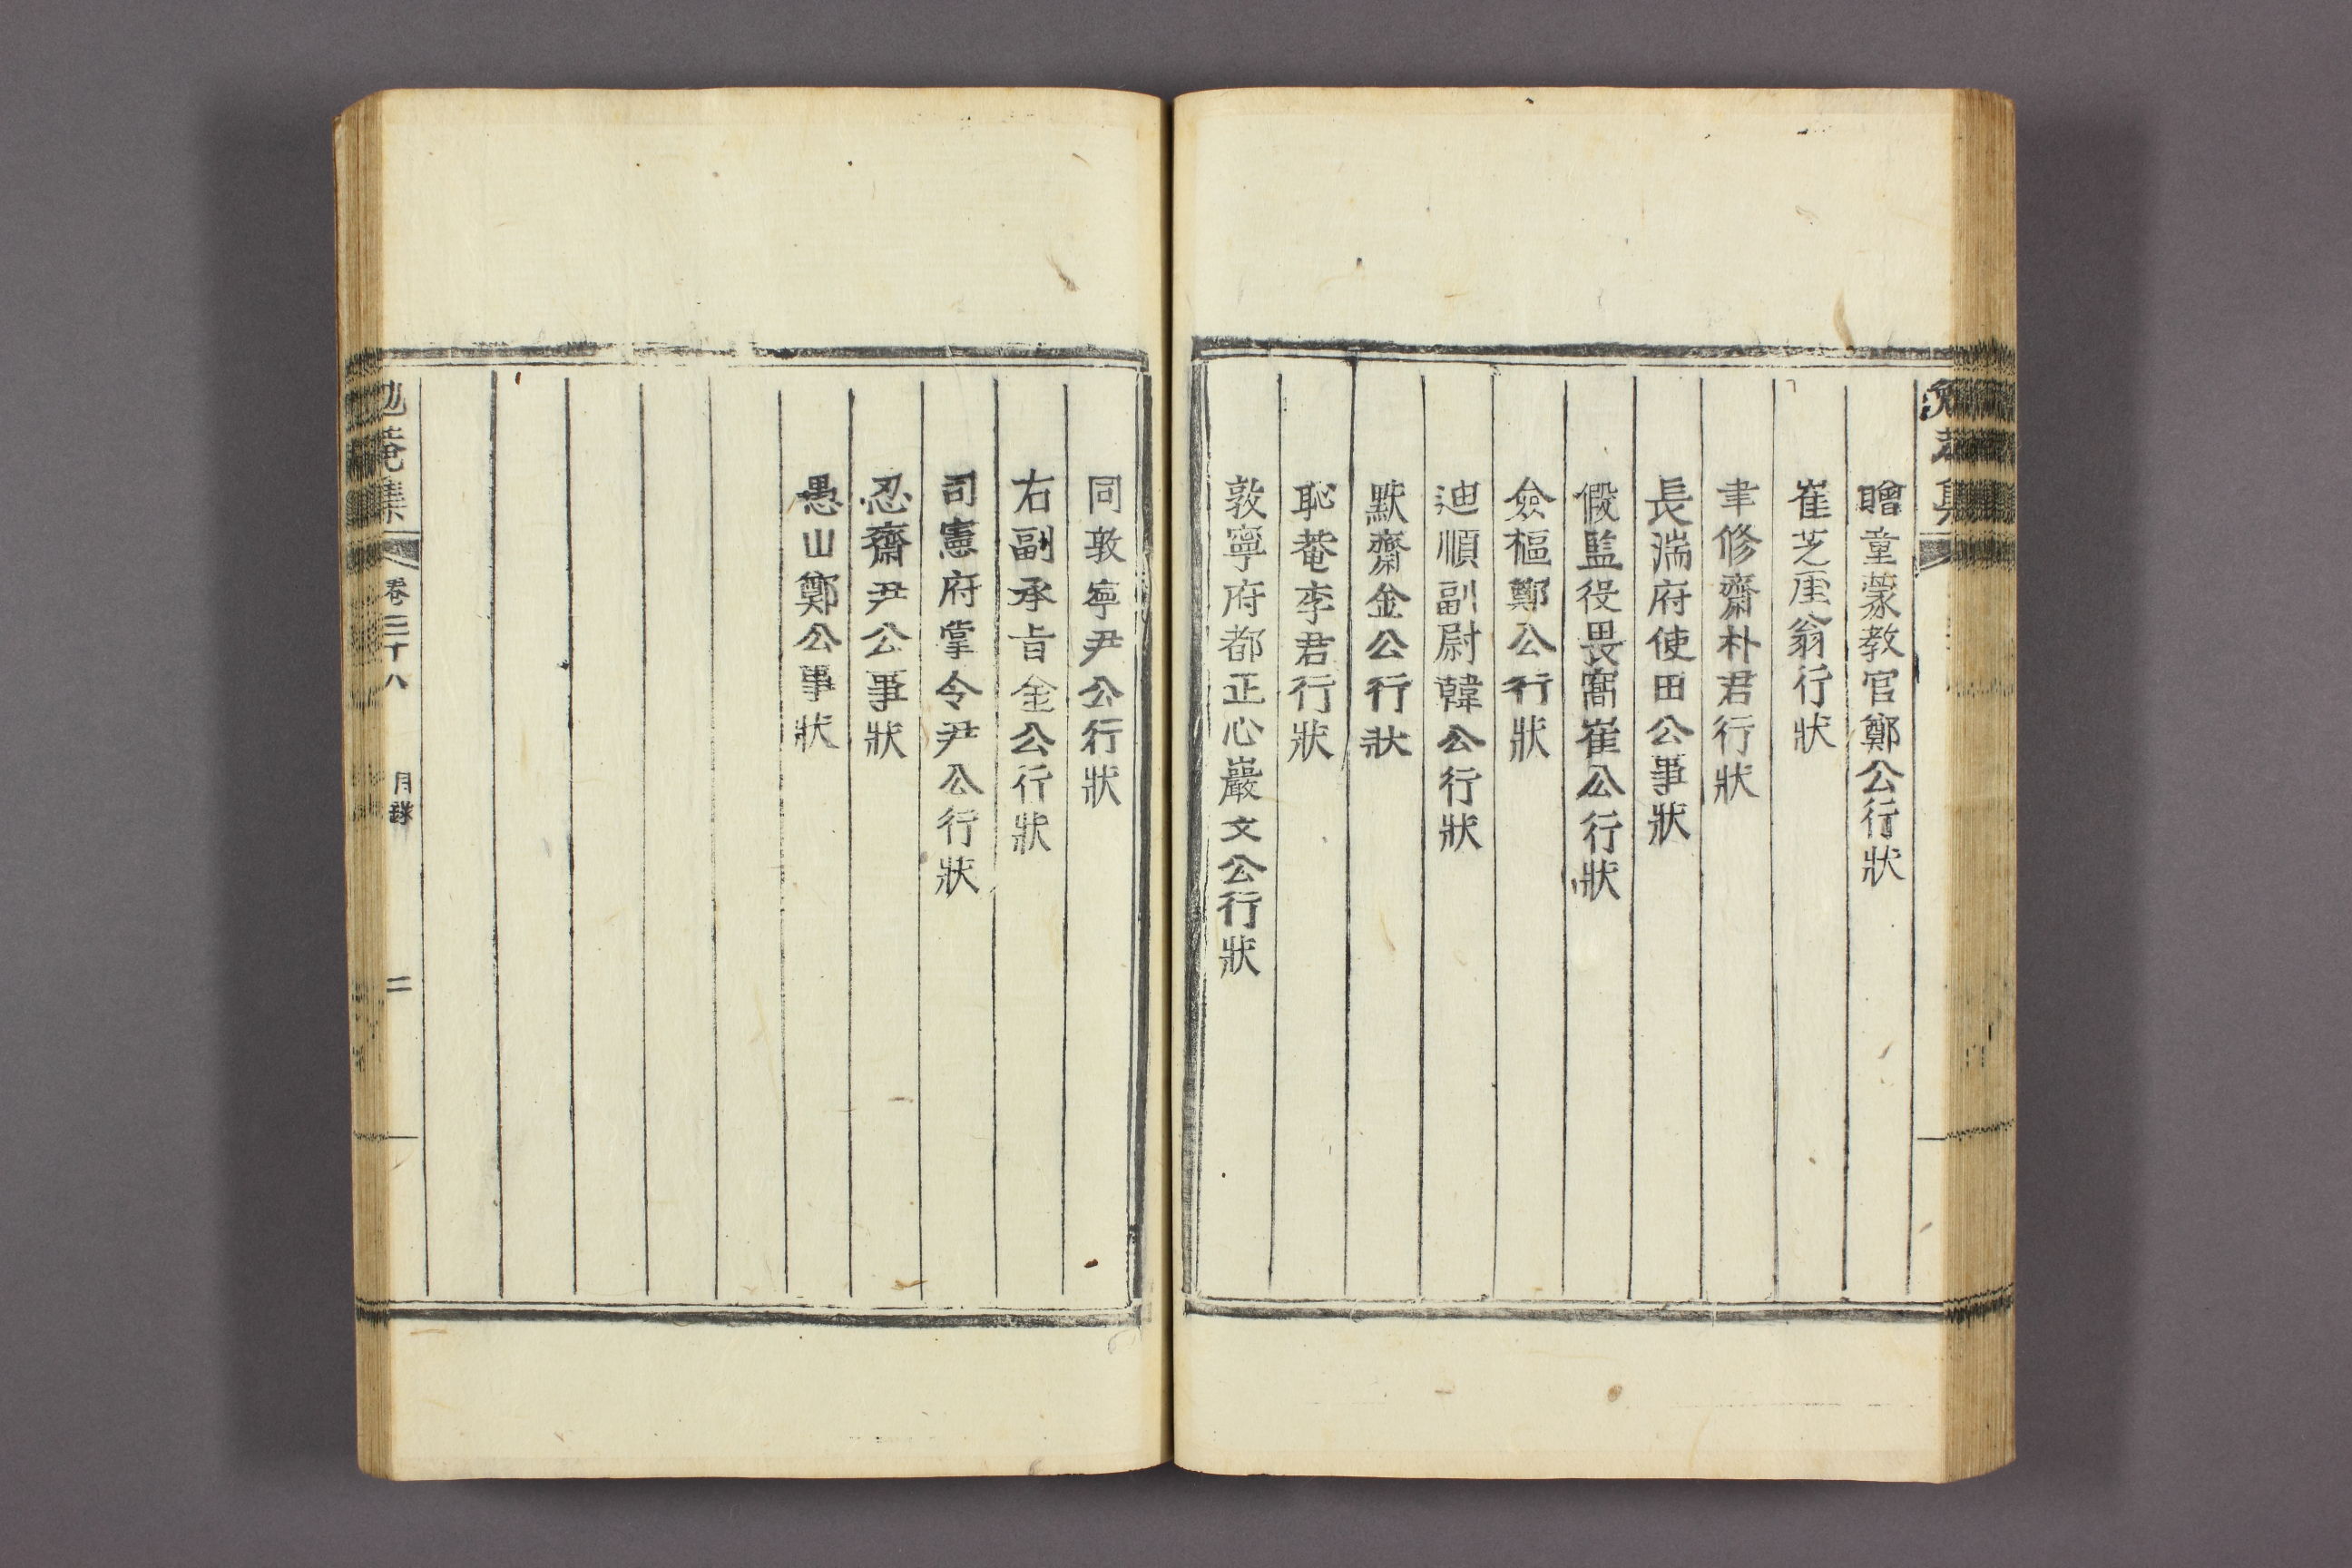 贈童蒙教官鄭公行狀
崔芝厓翁行狀
聿修齋朴君行狀
長湍府使田公事狀
假監役畏窩崔公行狀
僉樞鄭公行狀
迪順副尉韓公行狀
默齋金公行狀
恥菴李君行狀
敦寧府都正心巖文公行狀
同敦寧尹公行狀
右副承旨金公行狀
司憲府掌令尹公行狀
忍齋尹公事狀
愚山鄭公事狀
勉菴集 卷三十八 目錄 二